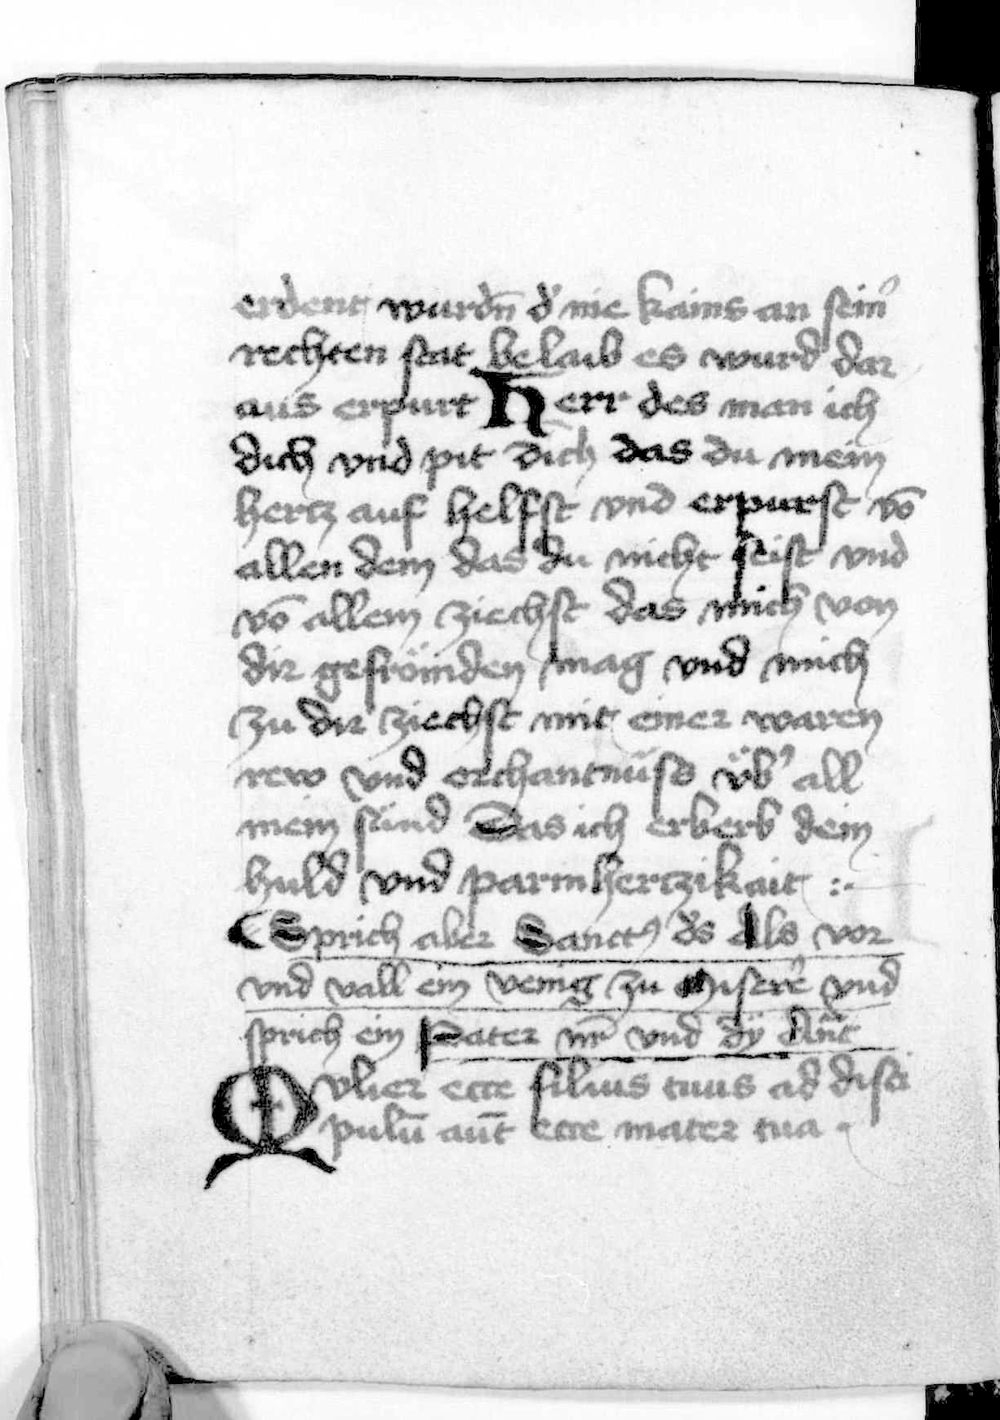 erdent wurdn̄ d' nie kains an sein'
rechten stat belaib es wurd dar
aus erpurt Herr des man ich
dich vnd pit dich das du mein
hertz auf helfst vnd erpurst vō
allen dem das du nicht seist vnd
vō allem ziechst das mich von
dir gefrömden mag vnd mich
zu dir ziechst mit einer waren
rew vnd erchantnüss vb' all
mein sünd Das ich erberb dein
huld vnd parmhertzikait :-
Sprich aber Sanct' ds Als vor
vnd vall ein venig zu Miserē vnd
sprich ein Pater nr̄ vnd dÿ Ant̄
Mvlier ecce filius tuus ad disci
pulū aut̄ ecce mater tua